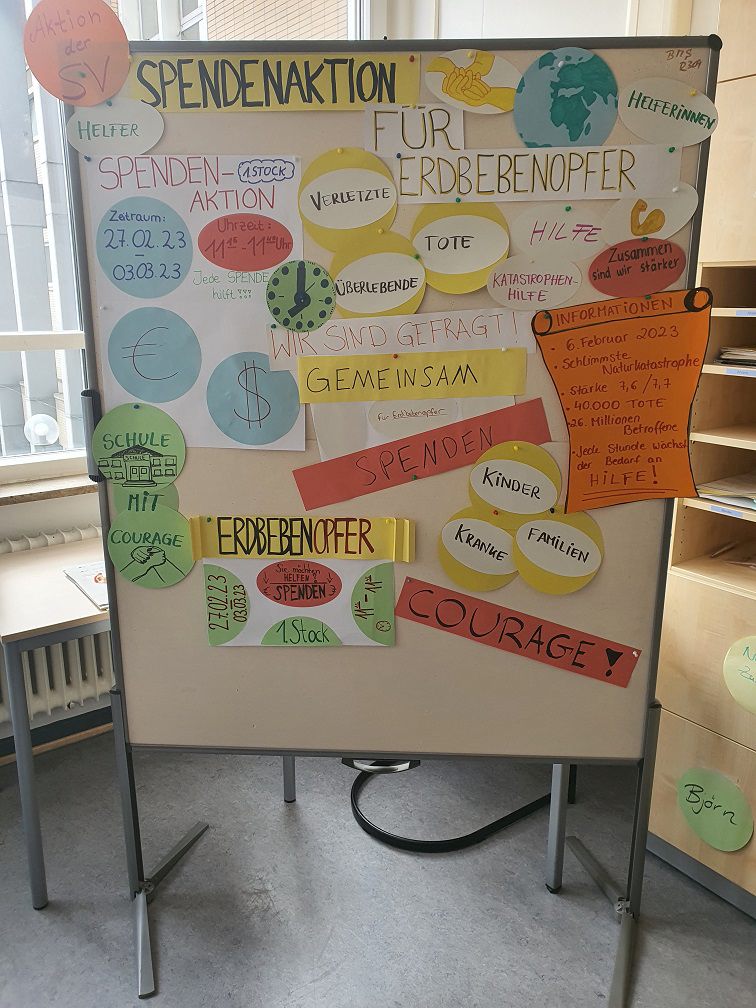 Aktion
der
SV
SPENDENAKTION
HELFER
HELFERINNEN
BMS
R309
FÜR
ERDBEBENOPFER
SPENDEN-
1.STOCK
AKTION
Zeitraum:
27.02.23
-
03.03.23
Uhrzeit:
11:15 - 11:40 Uhr
Jede SPENDE
hilft !!!
€
$
VERLETZTE
TOTE
ÜBERLEBENDE
HILFE
KATASTROPHEN-
HILFE
Zusammen
sind wir stärker
WIR SIND GEFRAGT!
GEMEINSAM
für Erdbebenopfer
SPENDEN
INFORMATIONEN
- 6. Februar 2023
- Schlimmste
Naturkatastrophe
- Stärke 7,6 / 7,7
- 40.000 TOTE
- 26. Millionen
Betroffene
- Jede Stunde wächst
der Bedarf an
HILFE!
SCHULE
SCHULE
MIT
COURAGE
KINDER
KRANKE
FAMILIEN
ERDBEBENOPFER
27.02.23
03.03.23
Sie möchten
HELFEN?
SPENDEN
1. Stock
COURAGE!
Björn